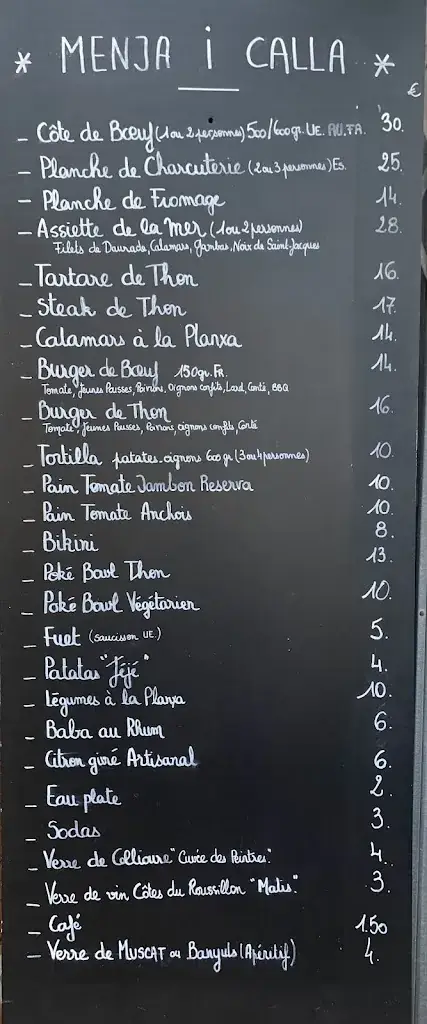 * MENJA i CALLA *
€
_ Côte de Bœuf (1 ou 2 personnes) 500/600gr. UE. AU.TA. 30.
_ Planche de Charcuterie (2 ou 3 personnes) Es. 25.
_ Planche de Fromage 14.
_ Assiette de la Mer (1 ou 2 personnes) 28.
Filets de Daurade, Calamars, Gambas, Noix de Saint-Jacques
_ Tartare de Thon 16.
_ Steak de Thon 17.
_ Calamars à la Planxa 14.
_ Burger de Bœuf 150gr. FR. 14.
Tomate, Jeunes Pousses, Poivrons, Oignons confits, Lard, Comté, BBQ
_ Burger de Thon 16.
Tomate, Jeunes Pousses, Poivrons, oignons confits, Comté
_ Tortilla patates-oignons 600 gr (3 ou 4 personnes) 10.
_ Pain Tomate Jambon Reserva 10.
_ Pain Tomate Anchois 10.
_ Bikini 8.
_ Poké Bowl Thon 13.
_ Poké Bowl Végétarien 10.
_ Fuet (saucisson UE.) 5.
_ Patatas "Jéjé" 4.
_ Légumes à la Planxa 10.
_ Baba au Rhum 6.
_ Citron givré Artisanal 6.
_ Eau plate 2.
_ Sodas 3.
_ Verre de Collioure "Cuvée des Peintres". 4.
_ Verre de vin Côtes du Roussillon "Matis". 3.
_ Café 1.50
_ Verre de MUSCAT ou Banyuls (Apéritif) 4.